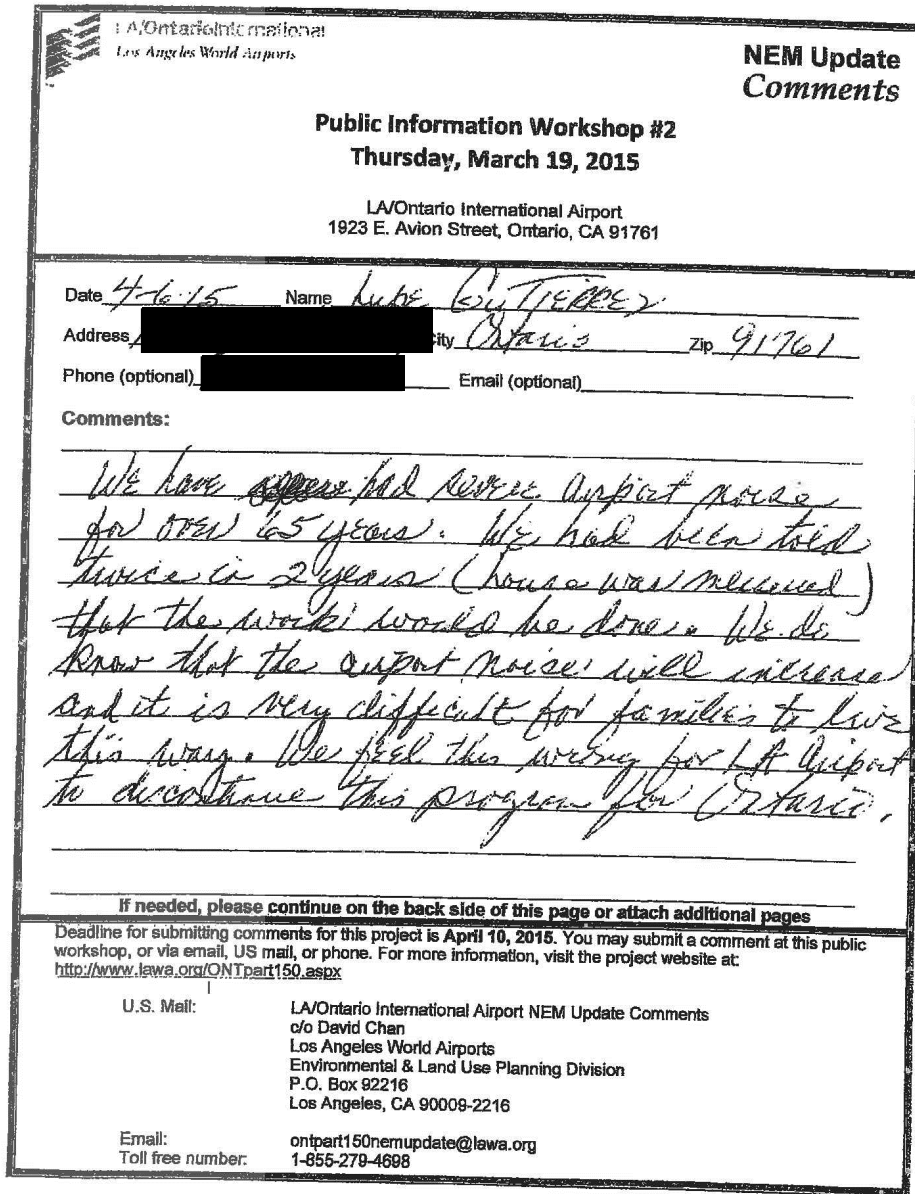 LA/OntarioInternational
Los Angeles World Airports
NEM Update
Comments
Public Information Workshop #2
Thursday, March 19, 2015
LA/Ontario International Airport
1923 E. Avion Street, Ontario, CA 91761
Date 4-6-15 Name Lupe GuTIERREZ
Address City Ontario Zip 91761
Phone (optional) Email (optional)
Comments:
We have had severe airport noise
for over 65 years. We had been told
twice in 2 years (house was measured)
that the work would be done. We do
know that the airport noise will increase
and it is very difficult for families to live
this way. We feel this wrong for LA Airport
to discontinue this program for Ontario.
If needed, please continue on the back side of this page or attach additional pages
Deadline for submitting comments for this project is April 10, 2015. You may submit a comment at this public
workshop, or via email, US mail, or phone. For more information, visit the project website at:
http://www.lawa.org/ONTpart150.aspx
U.S. Mail: LA/Ontario International Airport NEM Update Comments
c/o David Chan
Los Angeles World Airports
Environmental & Land Use Planning Division
P.O. Box 92216
Los Angeles, CA 90009-2216
Email: ontpart150nemupdate@lawa.org
Toll free number: 1-855-279-4698